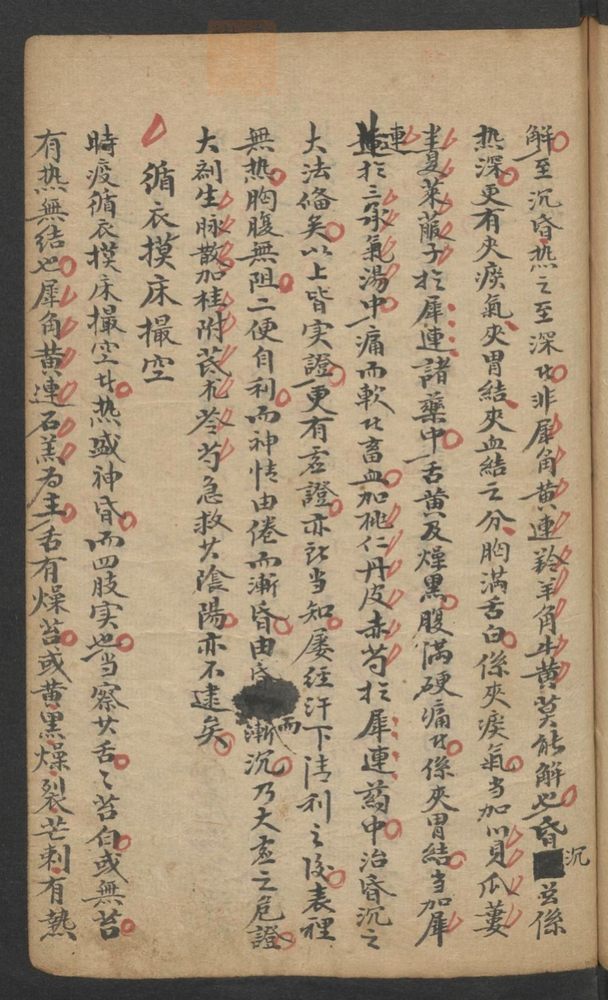 觧至沉昏热之至深此非犀角黄連羚羊角牛黄莫能解也昏沉並係
热深更有夾痰氣夾胃結夾血結之分胸满舌白係夾痰氣当加川貝瓜蔞
半夏莱菔子於犀連諸藥中舌黄及燥黑腹满硬痛此係夾胃結当加犀
連於三承氣湯中痛而軟此畜血加桃仁丹皮赤芍於犀連药中治昏沉之
大法俻矣以上皆实證更有虚證亦当知屡经汗下清利之後表裡
無热胸腹無阻二便自利而神情由倦而漸昏由昏而漸沉乃大虚之危證
大剂生脉散加桂附芪朮苓芍急救其陰陽亦不逮矣
循衣摸床撮空
時疫循衣摸床撮空此热盛神昏而四肢实也当察其舌〻苔白或無苔
有热無结也犀角黄連石羔为主舌有燥苔或黄黑燥裂芒刺有熱